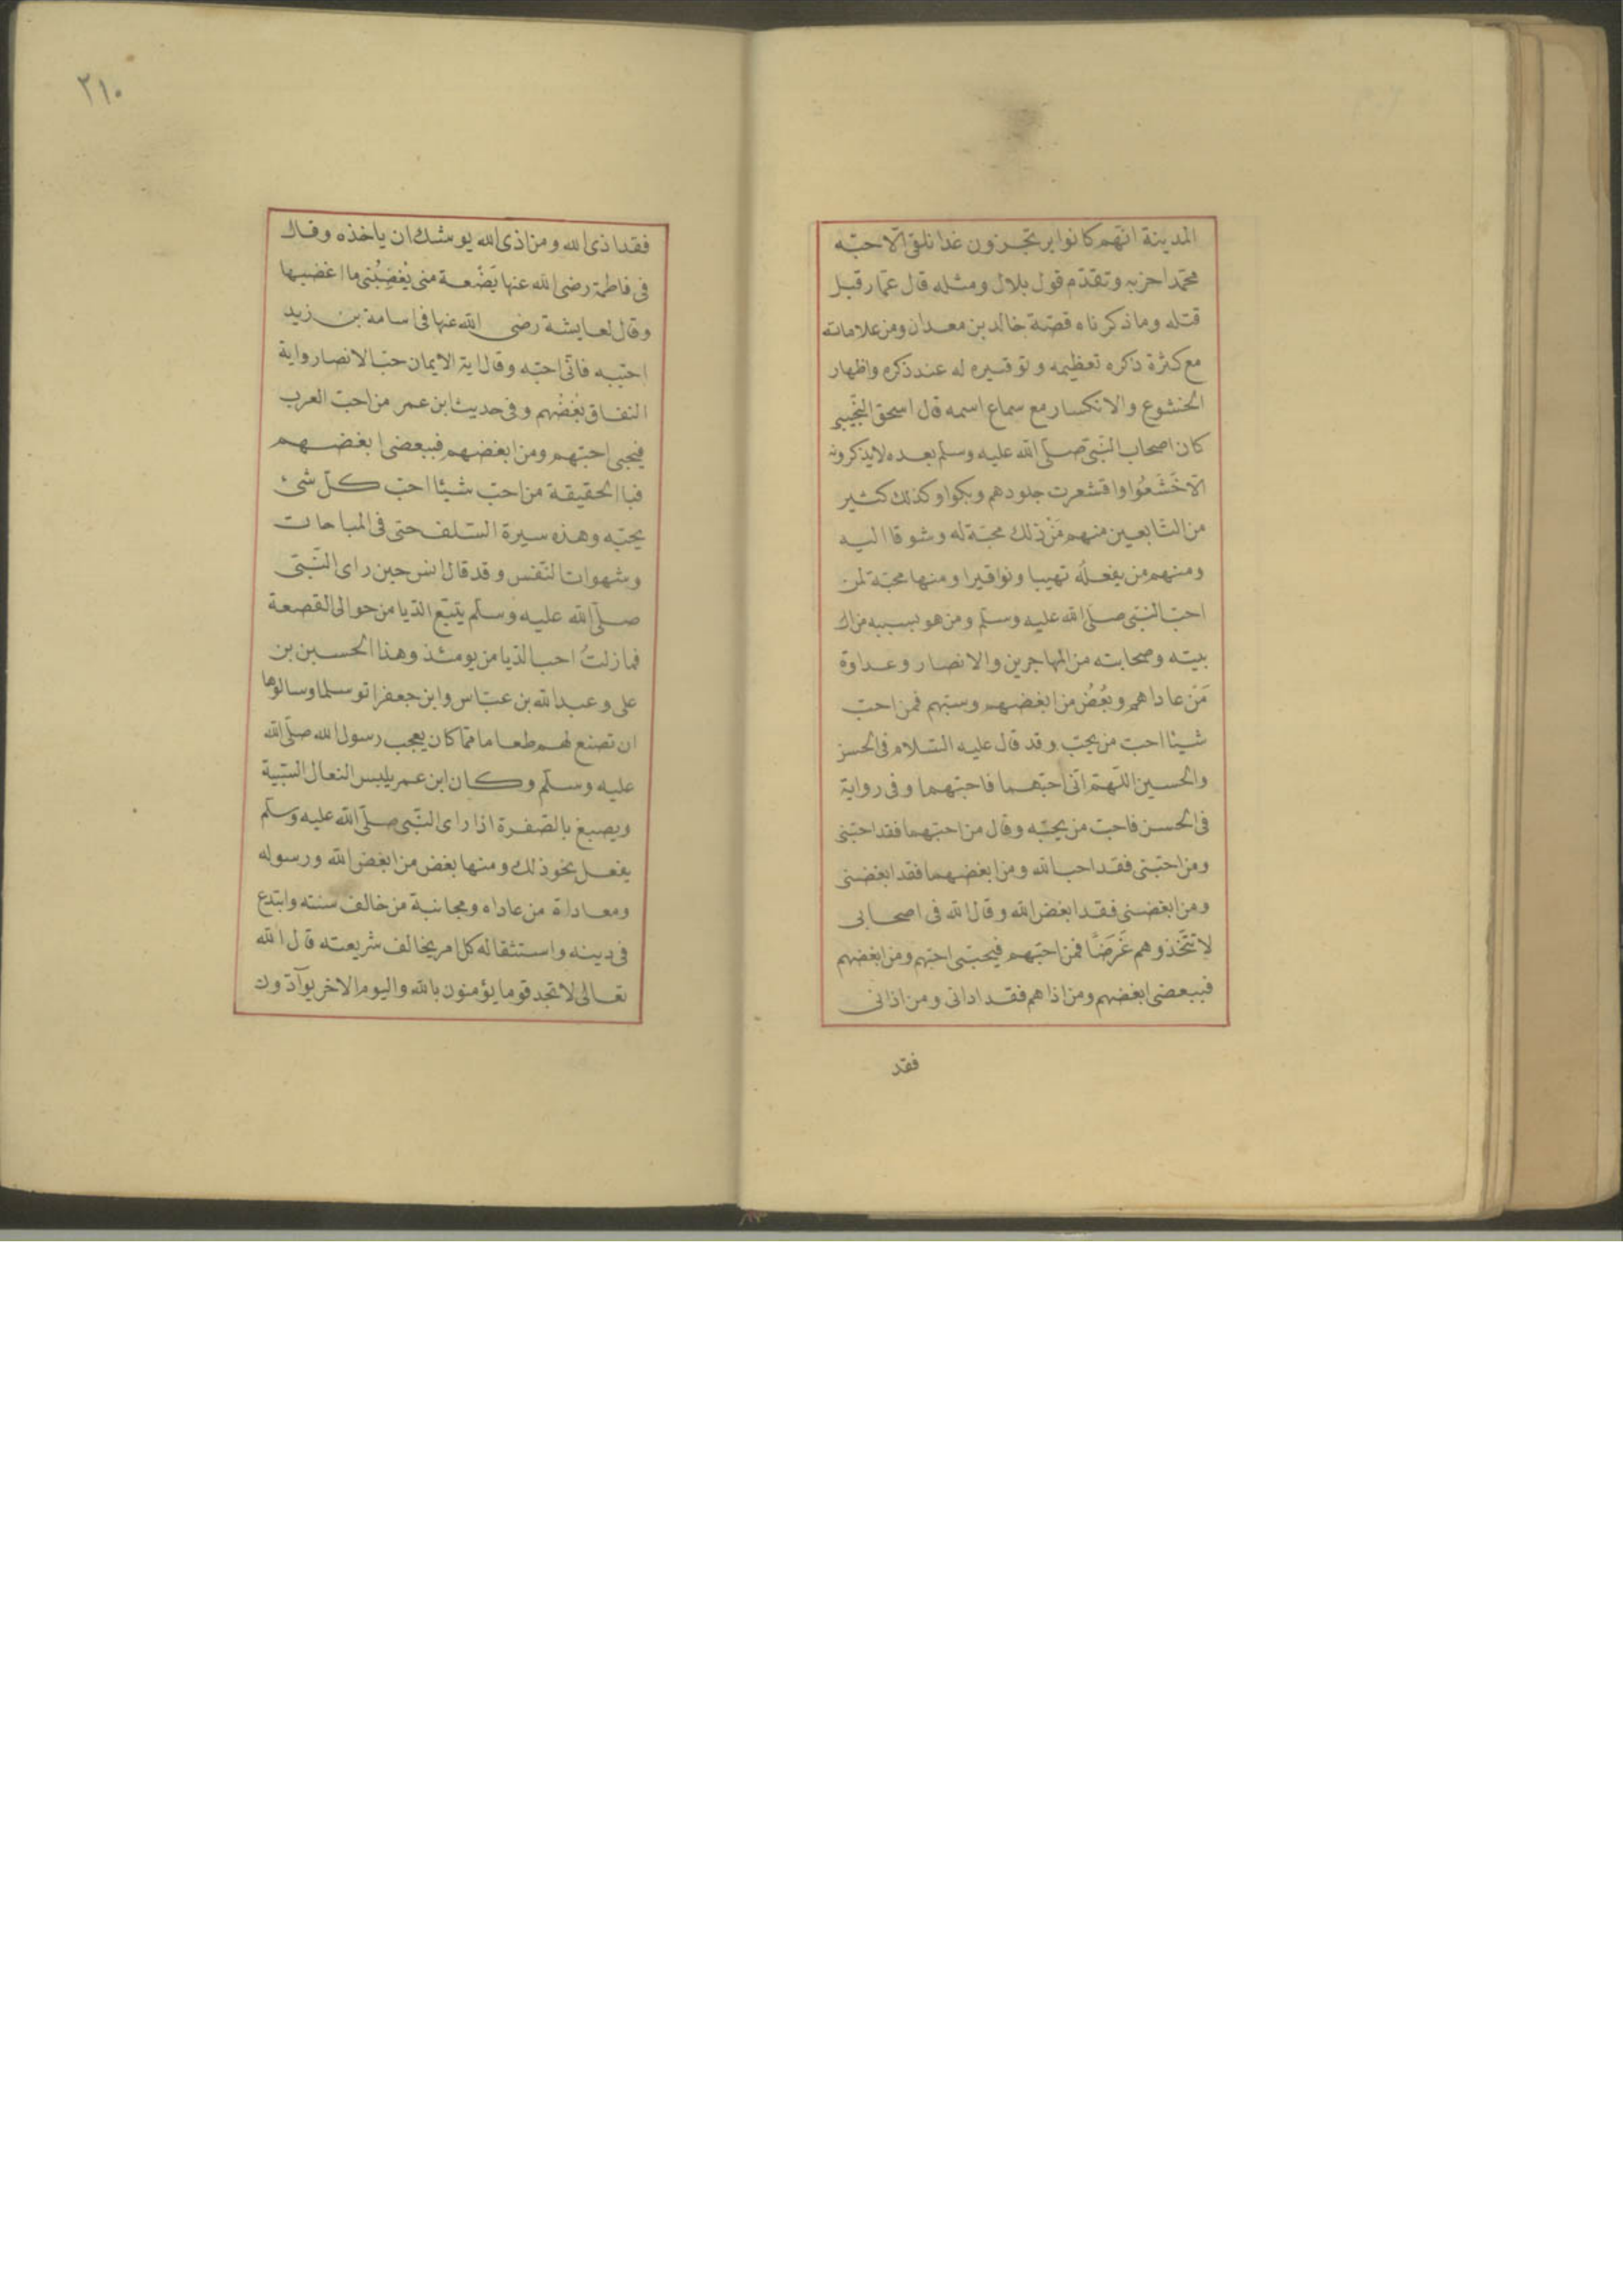 المدينة انّهم كانوا يرتجزون غدا نلقى الاحبّه
محمّدا حزبه وتقدّم قول بلال ومثله قال عمّار قبل
قتله وما ذكرناه قصّة خالد بن معدان ومن علاماته
مع كثرة ذكره تعظيمه وتوقيره له عند ذكره واظهار
الخشوع والانكسار مع سماع اسمه قال اسحق التّجيبى
كان اصحاب النّبىّ صلّى الله عليه وسلم بعده لا يذكرونه
الّا خَشَعُوا واقشعرت جلودهم وبكوا وكذلك كثير
من التّابعين منهم مَنْ ذلك محبّة له وشوقا اليه
ومنهم من يفعله تهيبا وتواقيرا ومنها محبّة لمن
احبّ النّبى صلّى الله عليه وسلّم ومن هو بسببه من ال
بيته وصحابته من المهاجرين والانصار وعداوة
مَنْ عاداهم وبُغْضُ من ابغضهم وسبّهم فمن احبّ
شيئا احبّ من يحبّ وقد قال عليه السّلام فى الحسن
والحسين اللّهمّ انّى احبّهما فاحبّهما وفى رواية
فى الحسن فاحبّ من يحبّه وقال من احبّهما فقد احبّنى
ومن احبّنى فقد احب الله ومن ابغضهما فقد ابغضنى
ومن ابغضنى فقد ابغض الله وقال الله فى اصحابى
لا تتّخذوهم غَرَضًا فمن احبّهم فيحبّى احبّهم ومن ابغضهم
فببعضى ابغضهم ومن اذاهم فقد ادانى ومن اذانى
فقد
٢١٠
فقد اذى الله ومن اذى الله يوشك ان ياخذه وقال
فى فاطمة رضى الله عنها بَضْعة منى يُغضِبُنى ما اغضبها
وقال لعايشة رضى الله عنها فى اسامة بن زيد
احبّيه فانّى احبّه وقال اية الايمان حبّ الانصار واية
النفاق بُغضُهم وفى حديث ابن عمر من احبّ العرب
فيحبى احبّهم ومن ابغضهم فببعضى ابغضهم
فبا الحقيقة من احبّ شيئا احبّ كلّ شئ
يحبّه وهذه سيرة السّلف حتى فى المباحات
وشهوات النّفس وقد قال انس حين راى النّبىّ
صلّى الله عليه وسلّم يتبّع الدّبا من حوالى القصعة
فما زلتُ احب الدّبا من يومئذ وهذا الحسين بن
على وعبد الله بن عبّاس وابن جعفر اتو سلما وسالوها
ان تصنع لهم طعاما ممّا كان يعجب رسول الله صلّى الله
عليه وسلّم وكان ابن عمر يلبس النعال السّبية
ويصبغ بالصّفرة اذا راى النّبى صلّى الله عليه وسلّم
يفعل نحو ذلك ومنها بغض من ابغض الله ورسوله
ومعاداة من عاداه ومجانبة من خالف سنته وابتدع
فى دينه واستثقاله كل امر يخالف شريعته قال الله
تعالى لا تجد قوما يؤمنون بالله واليوم الاخر يوآدّون